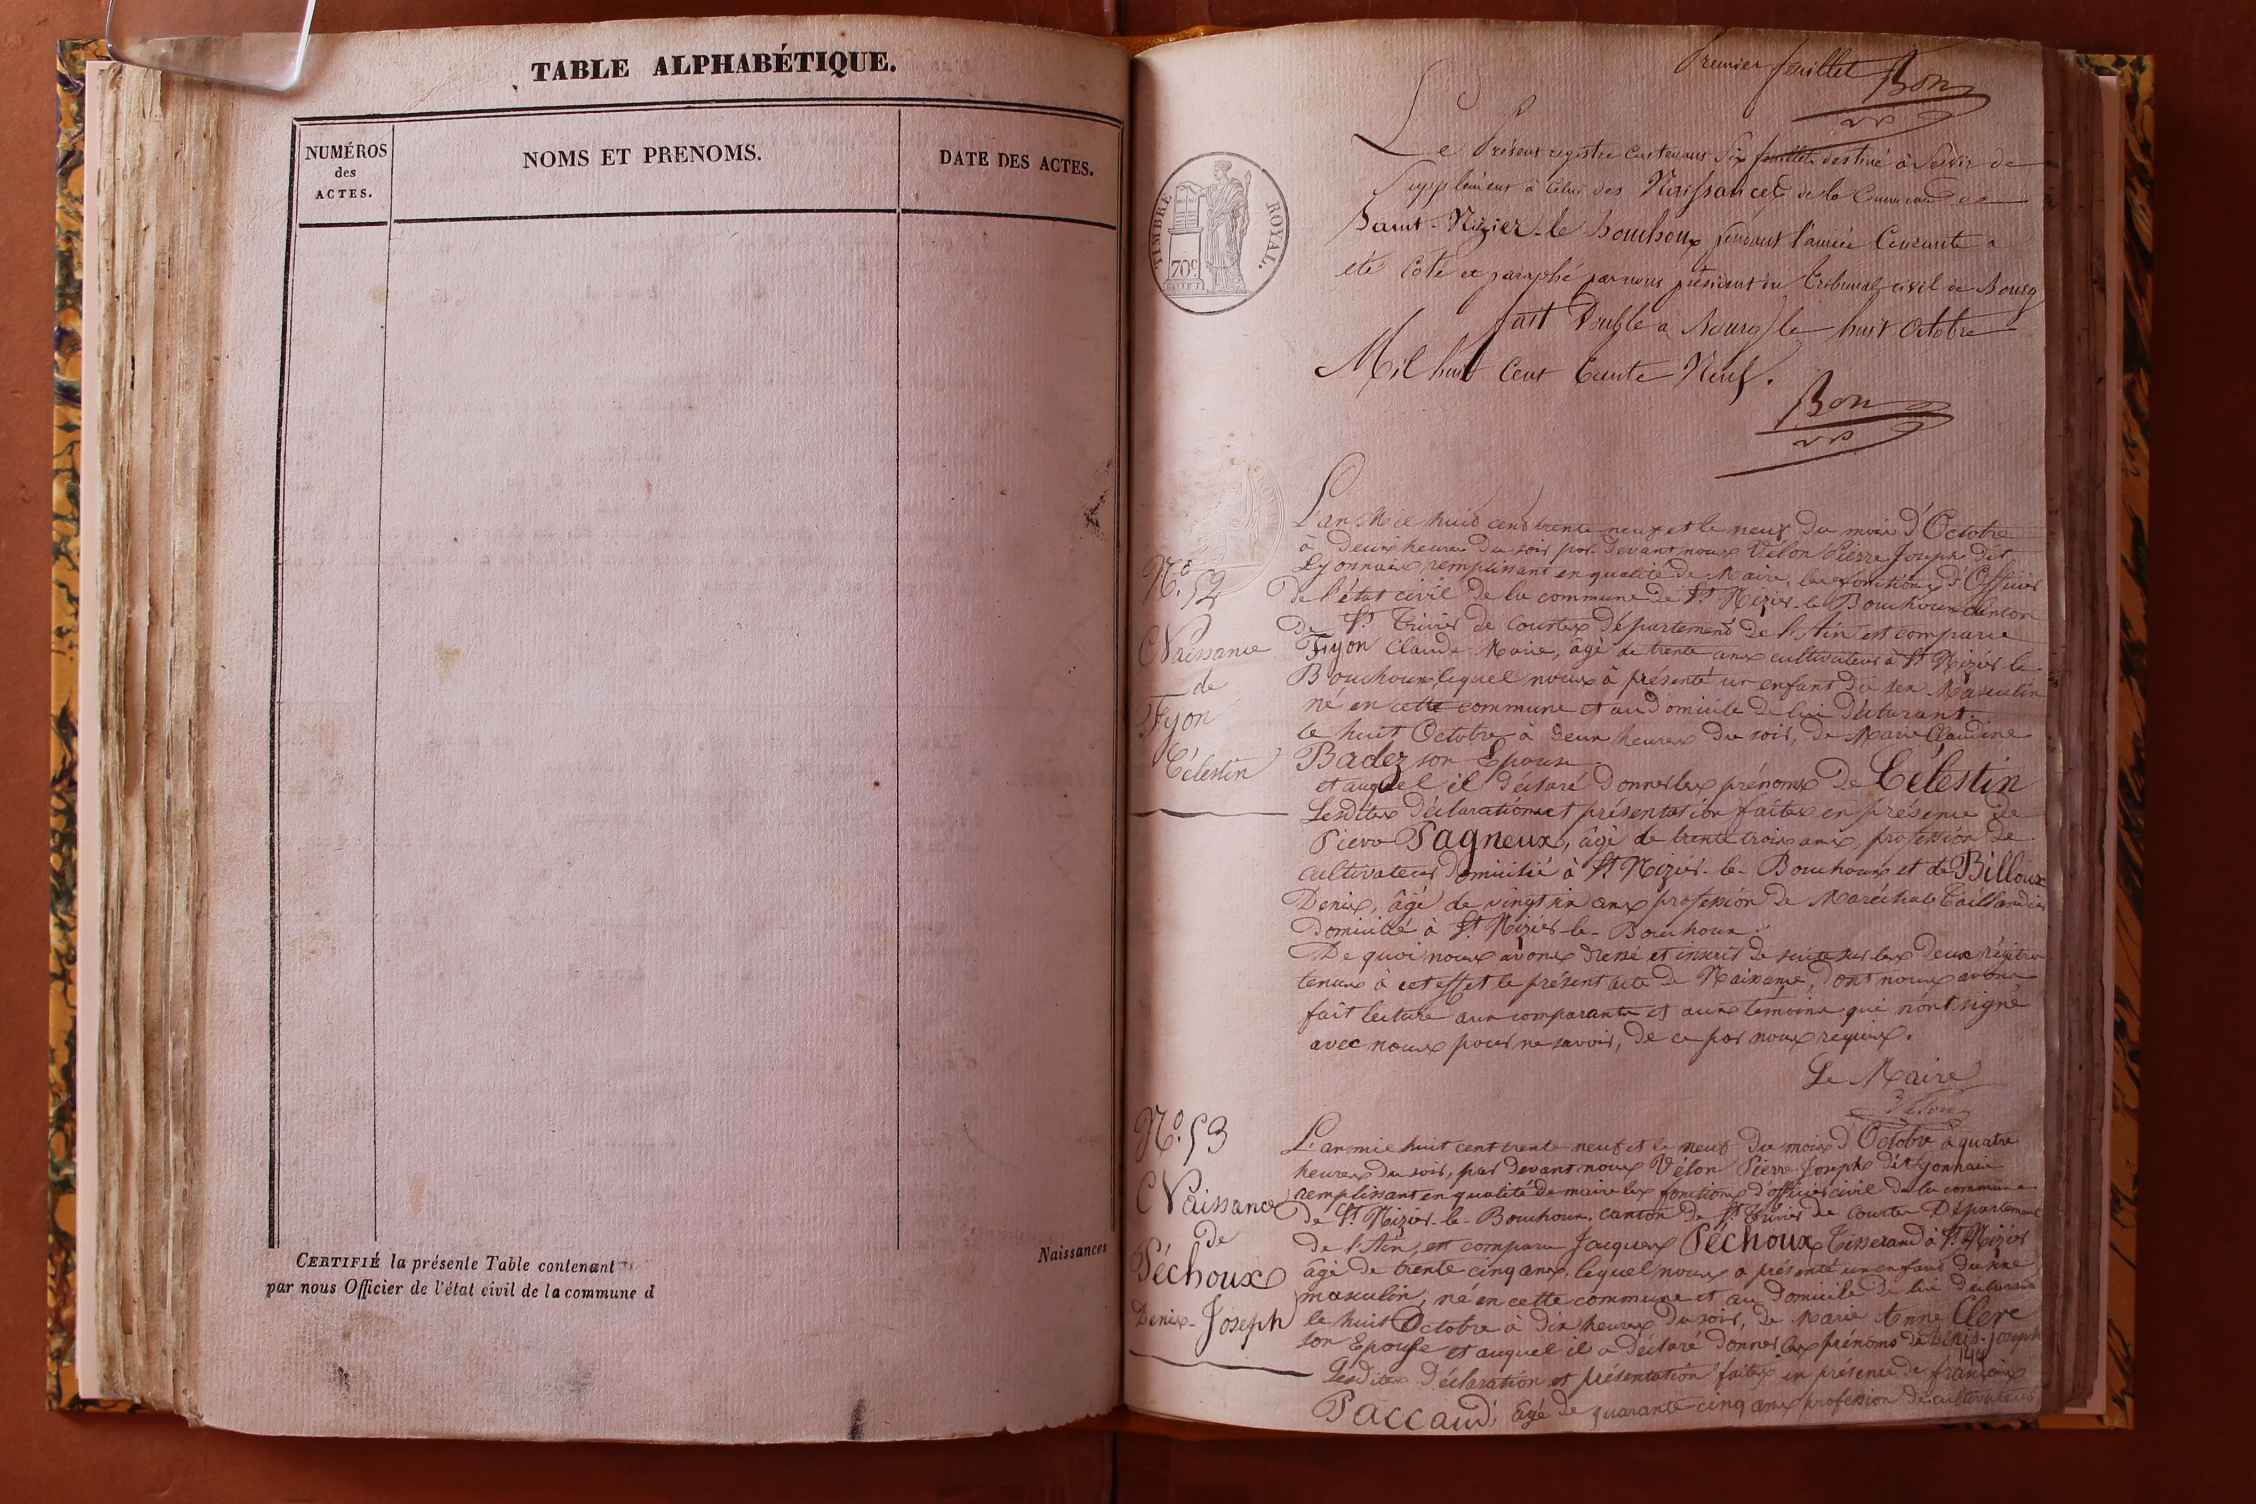 TABLE ALPHABÉTIQUE.
NUMÉROS
des
ACTES.
NOMS ET PRENOMS.
DATE DES ACTES.
CERTIFIÉ la présente Table contenant
Naissances
par nous Officier de l'état civil de la commune d
Premier feuillet Bon
TIMBRE ROYAL.
70c
Le Présent registre Contenant Six feuillets destiné à Servir de
Supplément à Celui des Naissances de la Commune de
Saint-Nizier-le-bouhoux pendant l'année Courante a
eté Coté et paraphé par nous président du tribunal civil de Bourg
fait Double a Bourg le huit Octobre
Mil huit Cent trente Neuf.
Bon
N.o 52
Naissance
de
Fyon
Célestin
L'an Mil huit cent trente neuf et le neuf du mois d'Octobre
à Deux heures du soir par devant nous Vélon Pierre Joseph dit
Lyonnais, remplissant en qualité de Maire, les fonctions d'Officier
De l'état civil de la commune de St Nizier-le-Bouchoux canton
de St Trivier de Courtes Département de l'Ain est comparu
Fyon Claude-Marie, âgé de trente ans cultivateur à St Nizier-le-
Bouchoux, lequel nous à présenté un enfant du sex Masculin
né en cette commune et au domicile de lui déclarant.
le huit Octobre à deux heures du soir, de Marie Claudine
Badez son Epouse
et auquel il déclaré donner les prénoms De Célestin
Lesdites déclaration et présentation faites en présence de
Pierre Pagneux, âgé de trente trois ans, profession de
cultivateur domicilié à St Nizier-le-Bouchoux et de Billoux
Denis, âgé de vingt six ans profession de Maréchal Taillandier
domicilié à St Nizier-le-Bouchoux.
De quoi nous avons dressé et inscrit de suite sur les deux régitre
tenus à cet effet le présent acte de Naissance, dont nous avons
fait lecture aux comparants et aux témoins qui n'ont signé
avec nous pour ne savoir, de ce par nous requis.
Le Maire
Vélon
N.o 53
Naissance
de
Péchoux
Denis-Joseph
L'an mil huit cent trente neuf et le neuf du mois d'Octobre à quatre
heures du soir, par devant nous Vélon Pierre Joseph dit Lyonnais
remplissant en qualité de maire les fonctions d'officier civil de la commune
de St Nizier-le-Bouchoux, canton de St Trivier de Courtes Département
de l'Ain, est comparu Jacques Péchoux Tisserand à St Nizier
âgé de trente cinq ans, lequel nous a présenté un enfant du sexe
masculin, né en cette commune et au domicile de lui déclarant
le huit Octobre à dix heures du soir, de Marie Anne Clerc
son Epouse et auquel il a déclaré donner les prénoms de Denis-Joseph
Lesdites déclaration et présentation faites en présence de françois
Paccaud, âgé de quarante-cinq ans profession de cultivateur